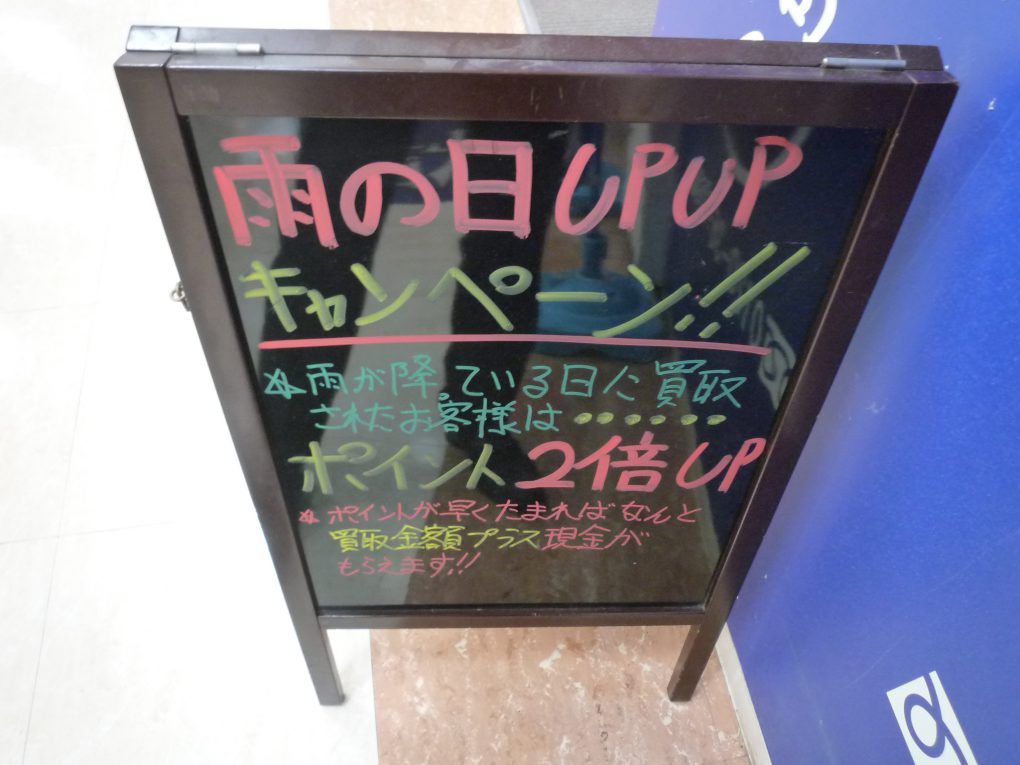 雨の日UPUP
キャンペーン!!
※雨が降っている日に買取
されたお客様は・・・・・・
ポイント2倍UP
※ポイントが早くたまればなんと
買取金額プラス現金が
もらえます!!